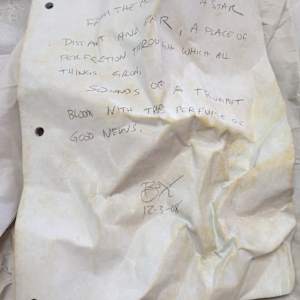 FROM THE A STAR
DISTANT AND FAR, A PLACE OF
PERFECTION THROUGH WHICH ALL
THINGS GROW.
SOUNDS OF A TRUMPET
BLOOM WITH THE PERFUME OF
GOOD NEWS.
12-3-08